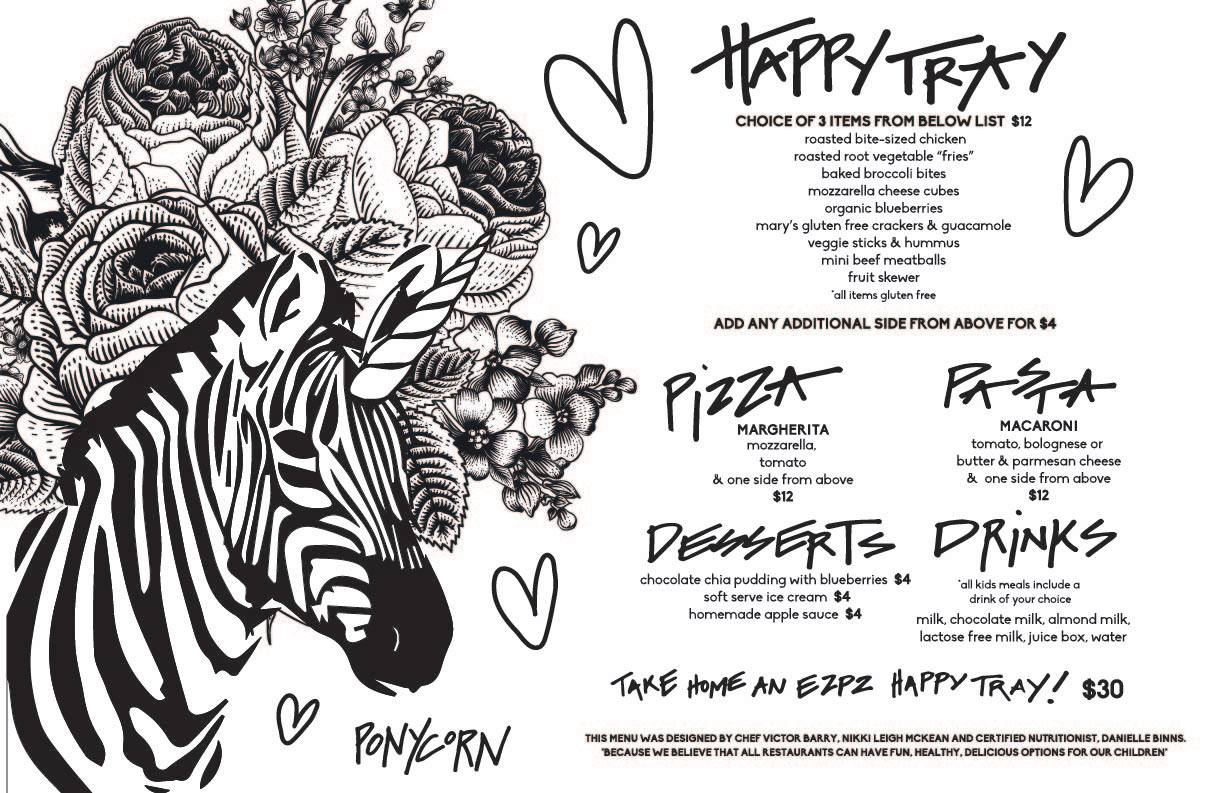 HAPPY TRAY
CHOICE OF 3 ITEMS FROM BELOW LIST $12
roasted bite-sized chicken
roasted root vegetable “fries”
baked broccoli bites
mozzarella cheese cubes
organic blueberries
mary’s gluten free crackers & guacamole
veggie sticks & hummus
mini beef meatballs
fruit skewer
*all items gluten free
ADD ANY ADDITIONAL SIDE FROM ABOVE FOR $4
PiZZA
MARGHERITA
mozzarella,
tomato
& one side from above
$12
PASTA
MACARONI
tomato, bolognese or
butter & parmesan cheese
& one side from above
$12
DESSERTS
chocolate chia pudding with blueberries $4
soft serve ice cream $4
homemade apple sauce $4
DRiNKS
*all kids meals include a
drink of your choice
milk, chocolate milk, almond milk,
lactose free milk, juice box, water
TAKE HOME AN EZPZ HAPPY TRAY! $30
PONYCORN
THIS MENU WAS DESIGNED BY CHEF VICTOR BARRY, NIKKI LEIGH MCKEAN AND CERTIFIED NUTRITIONIST, DANIELLE BINNS.
"BECAUSE WE BELIEVE THAT ALL RESTAURANTS CAN HAVE FUN, HEALTHY, DELICIOUS OPTIONS FOR OUR CHILDREN"